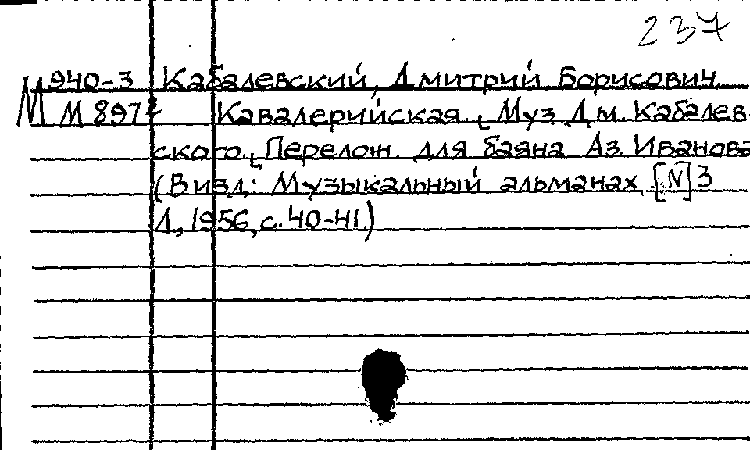 237
М 940-3 Кабалевский, Дмитрий Борисович
М 897 Кавалерийская. [Муз. Дм. Кабалев-
ского. [Перелож. для баяна Аз. Иванова
(В изд.: Музыкальный альманах. [N] 3
Л., 1956, с. 40-41)